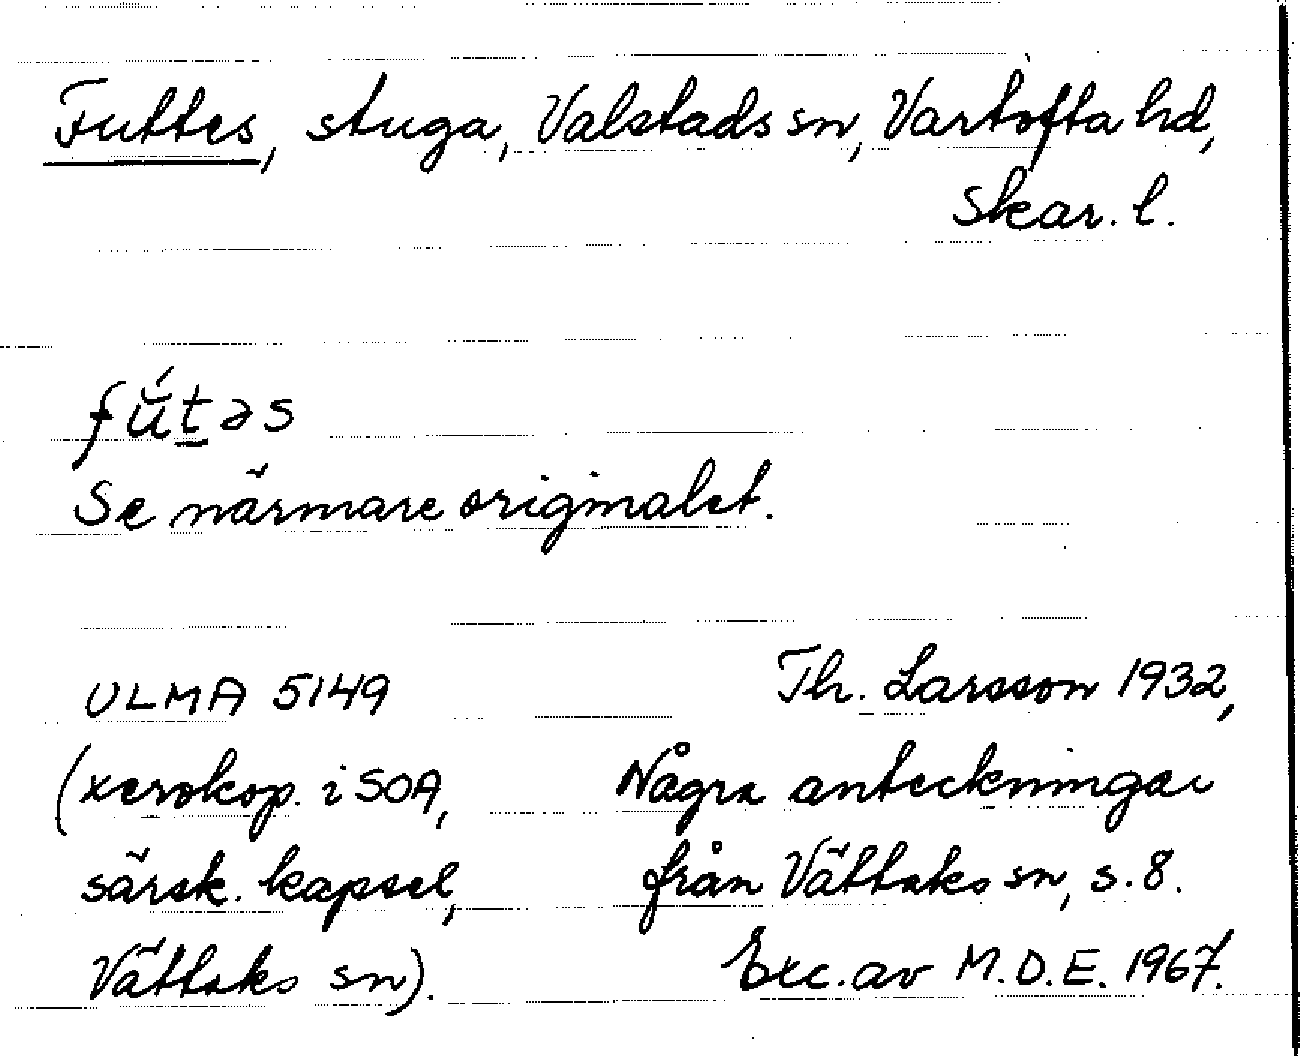 Futtes, stuga, Valstads sn, Vartofta hd,
Skar. l.
fú̆t̠əs
Se närmare originalet.
ULMA 5149
Th. Larsson 1932,
(xerokop. i SOA,
Några anteckningar
särsk. kapsel,
från Vättaks sn, s. 8.
Vättaks sn).
Exc. av M.D.E. 1967.